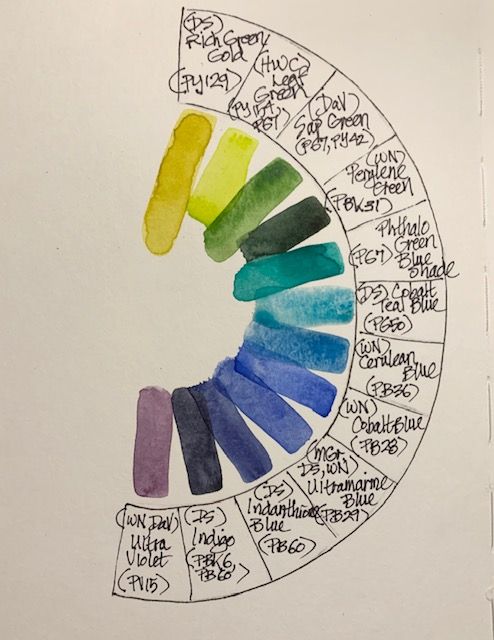 (DS)
Rich Green
Gold
(PY129)
(HWC)
Leaf
Green
(PY154,
PG7)
(DaV)
Sap Green
(PG7, PY42)
(WN)
Perylene
Green
(PBK31)
Phthalo
Green
(PG7) Blue
Shade
(DS) Cobalt
Teal Blue
(PG50)
(WN)
Cerulean
Blue
(PB36)
(WN)
Cobalt Blue
(PB28)
(MGr,
DS, WN)
Ultramarine
Blue
(PB29)
(DS)
Indanthrone
Blue
(PB60)
(DS)
Indigo
(PBK6,
PB60)
(WN, DaV)
Ultra
Violet
(PV15)